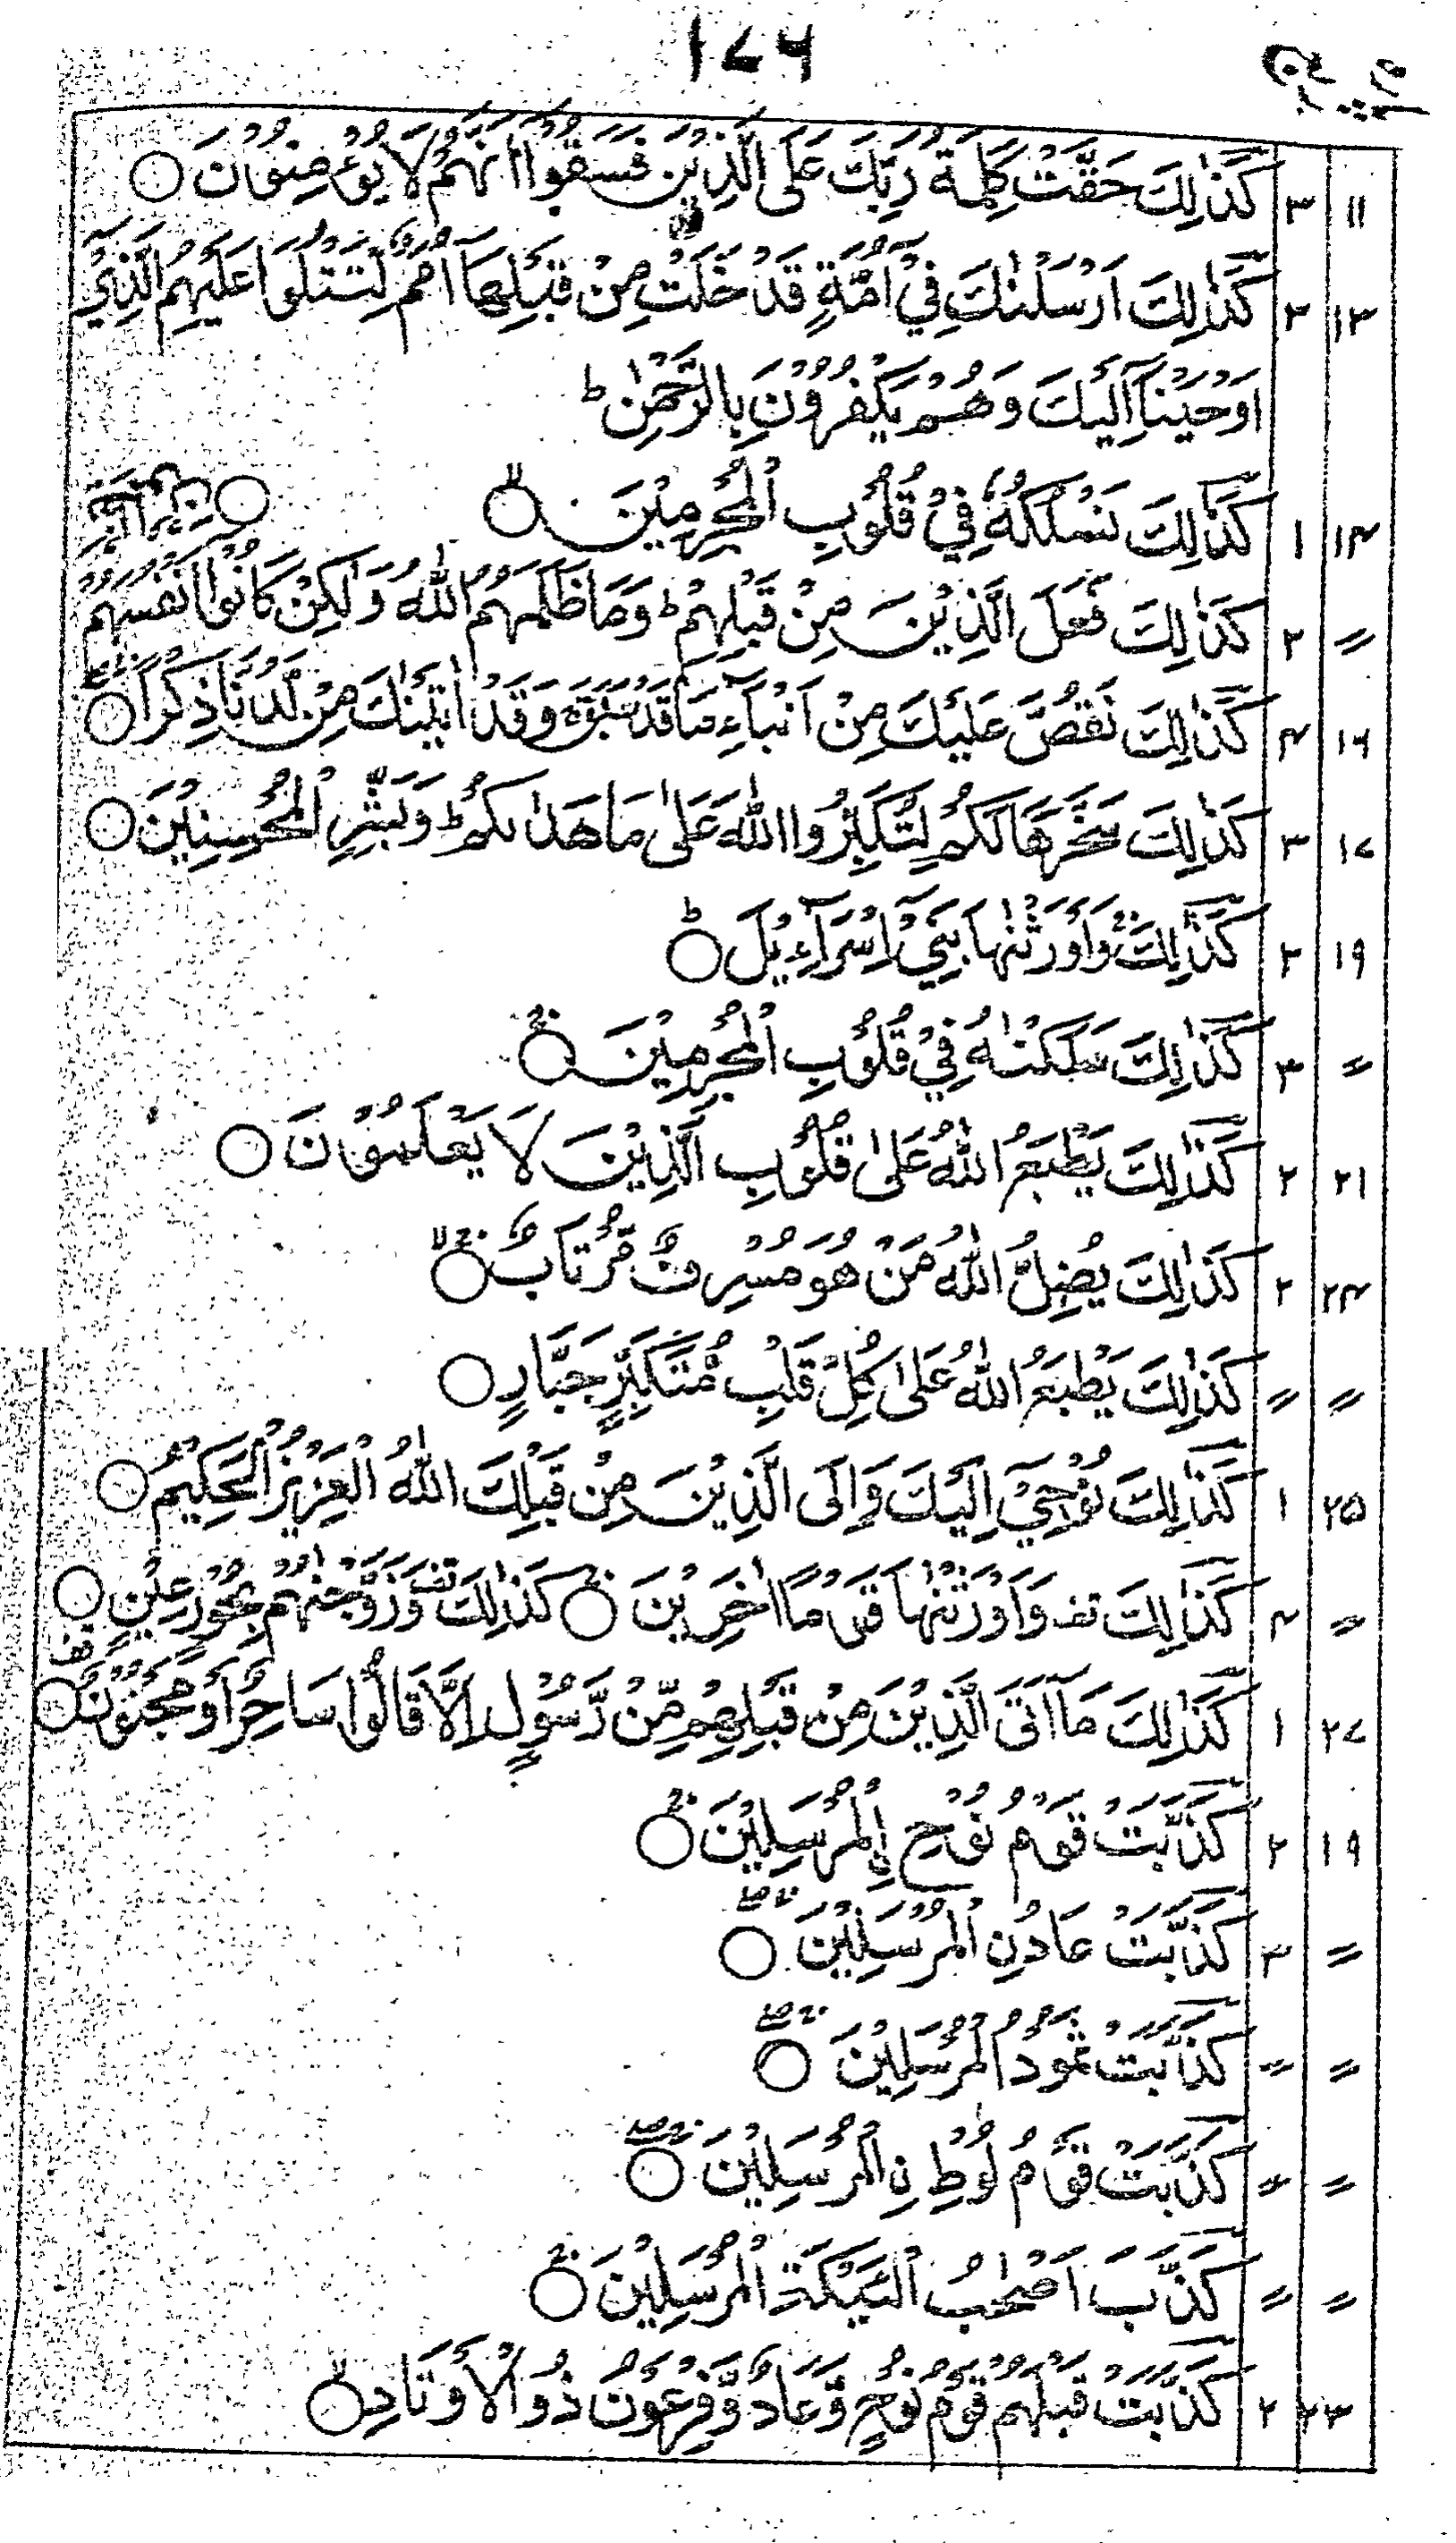 ۱۷۶
۱۱ ۳ كَذٰلِكَ حَقَّتْ كَلِمَةُ رَبِّكَ عَلَى الَّذِيْنَ فَسَقُوْٓا اَنَّهُمْ لَا يُؤْمِنُوْنَ ○
۱۳ ۳ كَذٰلِكَ اَرْسَلْنٰكَ فِيْٓ اُمَّةٍ قَدْ خَلَتْ مِنْ قَبْلِهَآ اُمَمٌ لِّتَتْلُوَا۟ عَلَيْهِمُ الَّذِيْٓ
اَوْحَيْنَآ اِلَيْكَ وَهُمْ يَكْفُرُوْنَ بِالرَّحْمٰنِ ؕ
۱۴ ۱ كَذٰلِكَ نَسْلُكُهٗ فِيْ قُلُوْبِ الْمُجْرِمِيْنَ ○ۙ
〃 ۲ كَذٰلِكَ فَعَلَ الَّذِيْنَ مِنْ قَبْلِهِمْ ؕ وَمَا ظَلَمَهُمُ اللّٰهُ وَلٰكِنْ كَانُوْٓا اَنْفُسَهُمْ
۱۶ ۴ كَذٰلِكَ نَقُصُّ عَلَيْكَ مِنْ اَنْۢبَآءِ مَا قَدْ سَبَقَ ۚ وَقَدْ اٰتَيْنٰكَ مِنْ لَّدُنَّا ذِكْرًا ○
۱۷ ۳ كَذٰلِكَ سَخَّرَهَا لَكُمْ لِتُكَبِّرُوا اللّٰهَ عَلٰى مَا هَدٰىكُمْ ؕ وَبَشِّرِ الْمُحْسِنِيْنَ ○
۱۹ ۲ كَذٰلِكَ ؕ وَاَوْرَثْنٰهَا بَنِيْٓ اِسْرَآءِيْلَ ○ؕ
〃 ۳ كَذٰلِكَ سَلَكْنٰهُ فِيْ قُلُوْبِ الْمُجْرِمِيْنَ ○ؕ
۲۱ ۲ كَذٰلِكَ يَطْبَعُ اللّٰهُ عَلٰى قُلُوْبِ الَّذِيْنَ لَا يَعْلَمُوْنَ ○
۲۴ ۲ كَذٰلِكَ يُضِلُّ اللّٰهُ مَنْ هُوَ مُسْرِفٌ مُّرْتَابٌ ○ۙ
〃 〃 كَذٰلِكَ يَطْبَعُ اللّٰهُ عَلٰى كُلِّ قَلْبِ مُتَكَبِّرٍ جَبَّارٍ ○
۲۵ ۱ كَذٰلِكَ يُوْحِيْٓ اِلَيْكَ وَاِلَى الَّذِيْنَ مِنْ قَبْلِكَ اللّٰهُ الْعَزِيْزُ الْحَكِيْمُ ○
〃 ۴ كَذٰلِكَ قف وَاَوْرَثْنٰهَا قَوْمًا اٰخَرِيْنَ ○ كَذٰلِكَ قف وَزَوَّجْنٰهُمْ بِحُوْرٍ عِيْنٍ ○
۲۷ ۱ كَذٰلِكَ مَآ اَتَى الَّذِيْنَ مِنْ قَبْلِهِمْ مِّنْ رَّسُوْلٍ اِلَّا قَالُوْا سَاحِرٌ اَوْ مَجْنُوْنٌ ○
۱۹ ۲ كَذَّبَتْ قَوْمُ نُوْحِ نِ الْمُرْسَلِيْنَ ○
〃 ۳ كَذَّبَتْ عَادُ نِ الْمُرْسَلِيْنَ ○
〃 〃 كَذَّبَتْ ثَمُوْدُ الْمُرْسَلِيْنَ ○
〃 〃 كَذَّبَتْ قَوْمُ لُوْطِ نِ الْمُرْسَلِيْنَ ○
〃 〃 كَذَّبَ اَصْحٰبُ لْـَٔيْكَةِ الْمُرْسَلِيْنَ ○
۲۳ ۲ كَذَّبَتْ قَبْلَهُمْ قَوْمُ نُوْحٍ وَّعَادٌ وَّفِرْعَوْنُ ذُو الْاَوْتَادِ ○ۙ